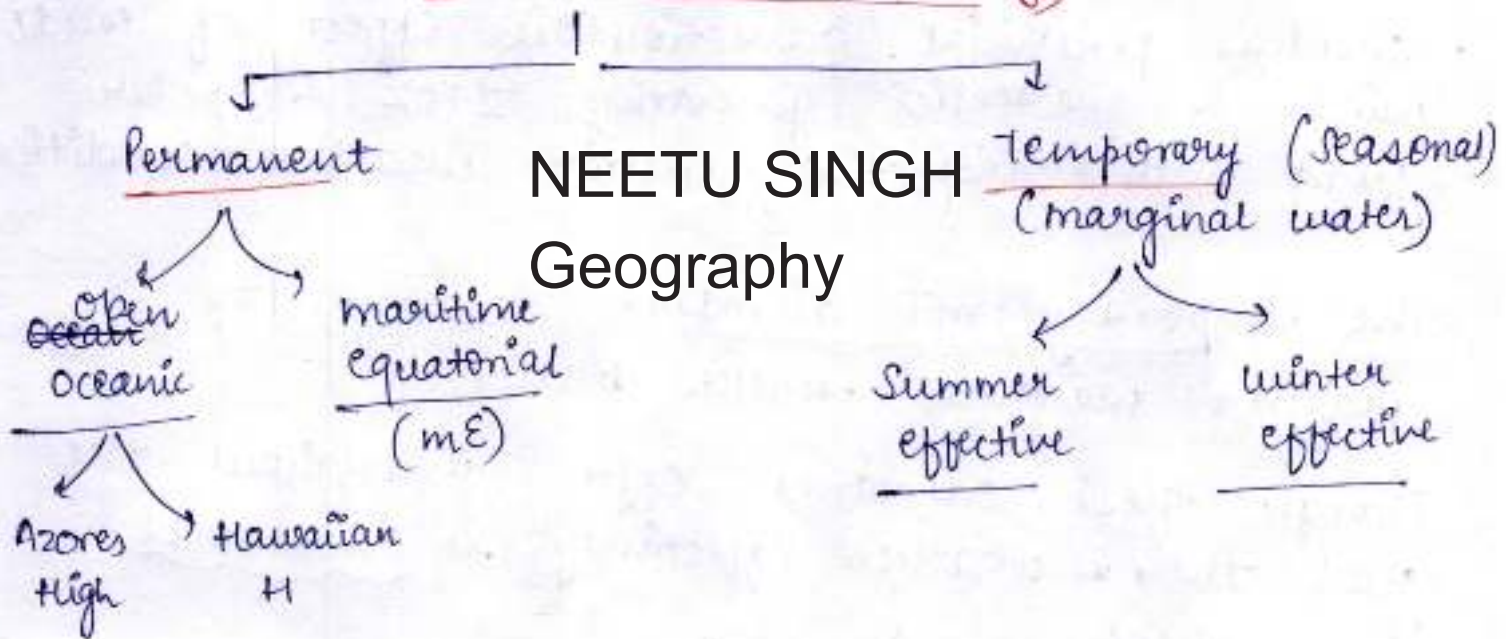 Permanent
NEETU SINGH
Geography
Temporary (Seasonal)
(marginal water)
open
Oceanic
maritime
equatorial
(mE)
Summer
effective
winter
effective
Azores
High
Hawaiian
H